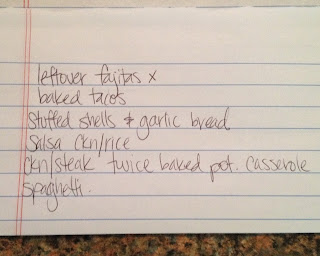 leftover fajitas x
baked tacos
stuffed shells & garlic bread
Salsa Ckn/rice
Ckn/steak twice baked pot. casserole
spaghetti.